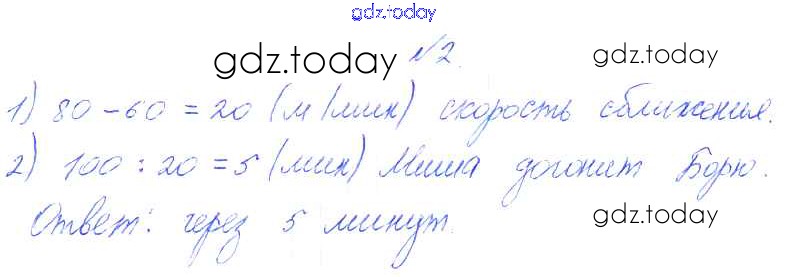 gdz.today
gdz.today №2. gdz.today
1) 80 - 60 = 20 (м/мин) скорость сближения.
2) 100 : 20 = 5 (мин) Миша догонит Борю.
Ответ: через 5 минут.
gdz.today